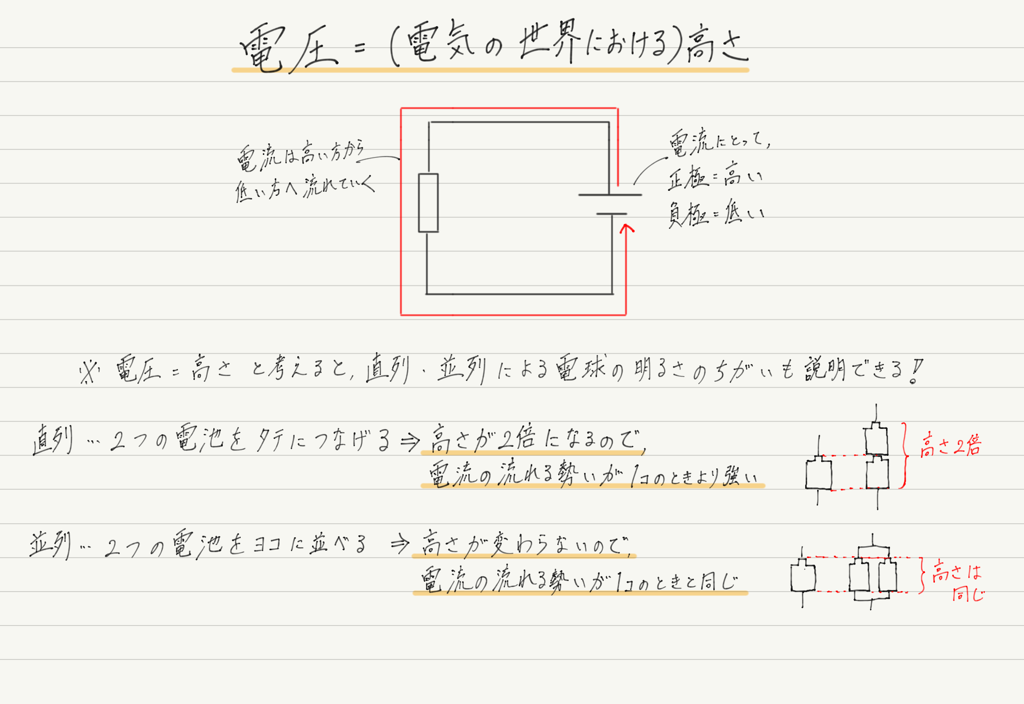 電圧=(電気の世界における)高さ
電流は高い方から
低い方へ流れていく
電流にとって,
正極=高い
負極=低い
※ 電圧=高さ と考えると,直列・並列による電球の明るさのちがいも説明できる!
直列…2つの電池をタテにつなげる⇒高さが2倍になるので,
電流の流れる勢いが1コのときより強い
高さ2倍
並列…2つの電池をヨコに並べる ⇒ 高さが変わらないので,
電流の流れる勢いが1コのときと同じ
高さは
同じ